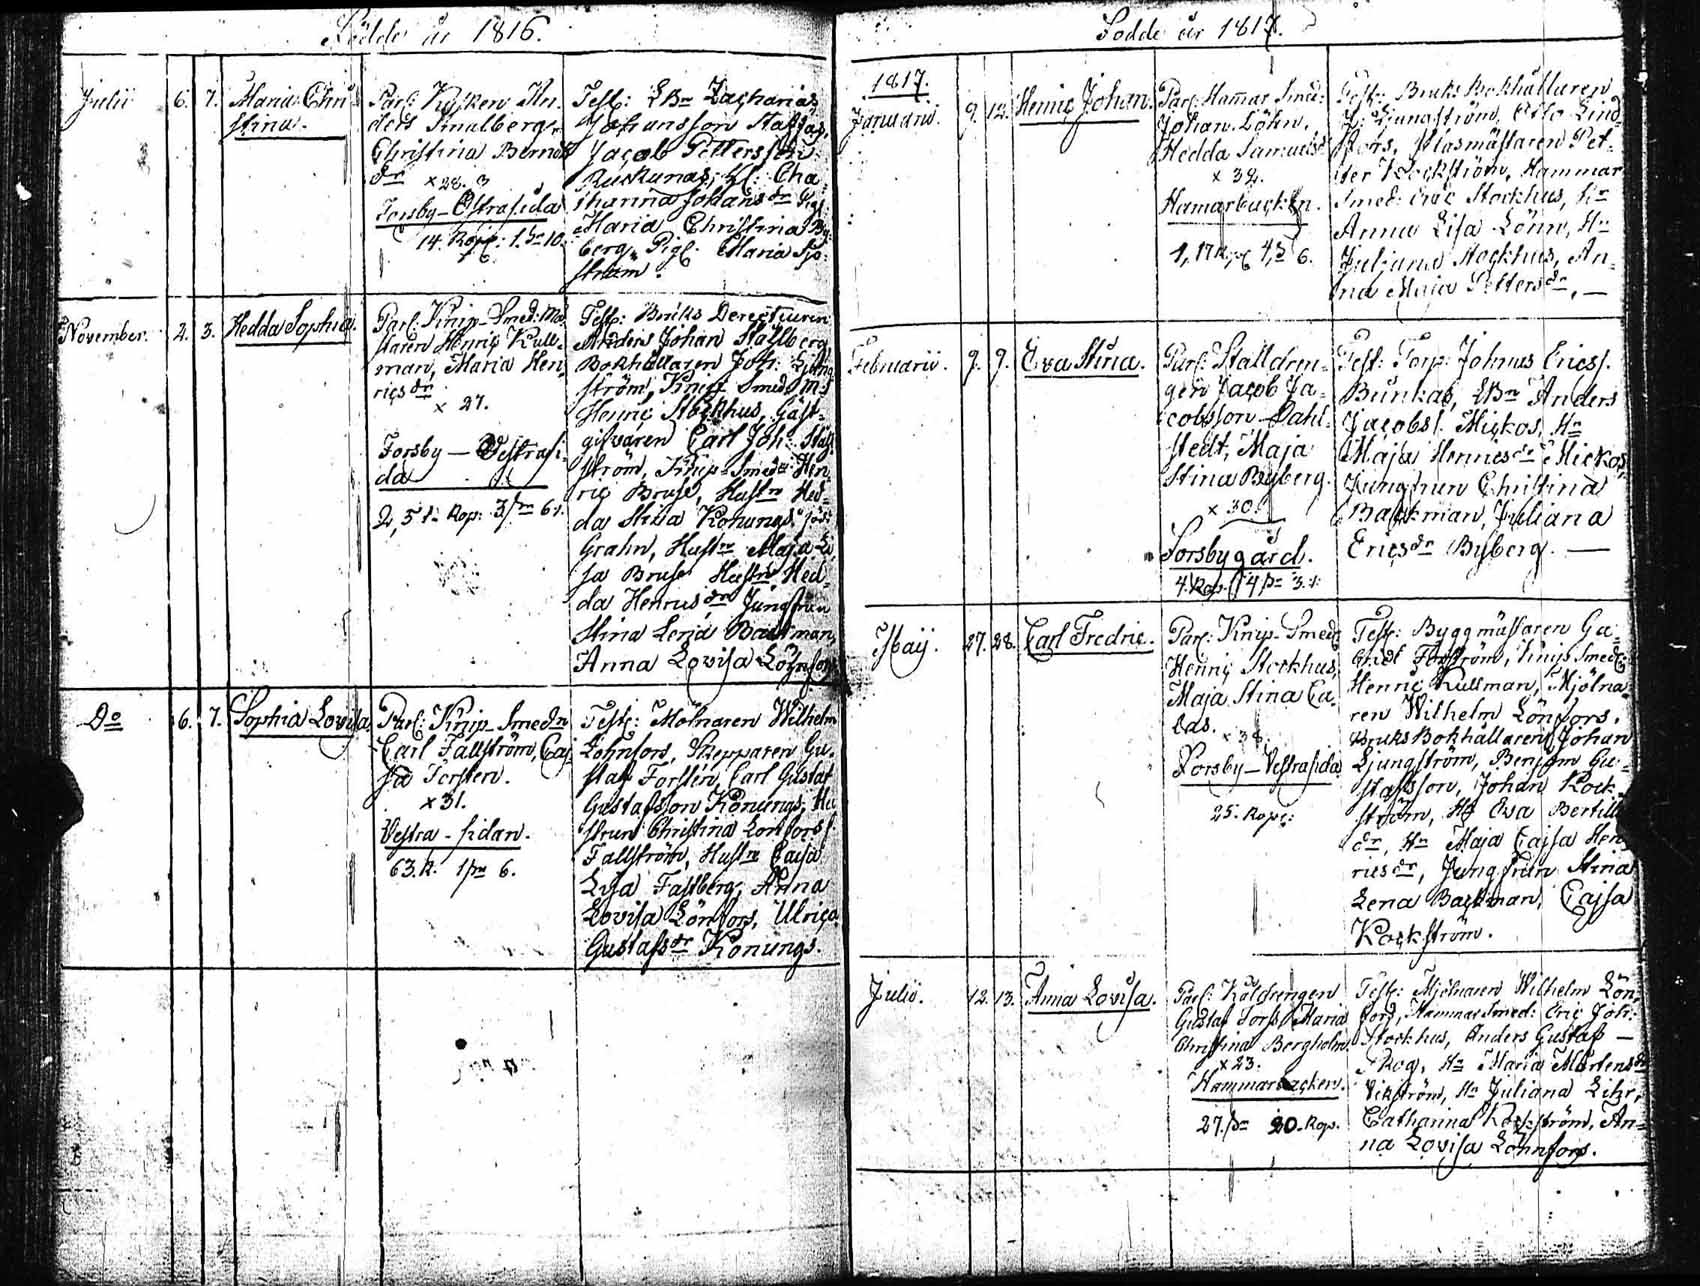 Födde år 1816.
Julii
6. 7.
Maria Chri
stina.
Par: Kusken An
ders Smalberg,
Christina Berndts
dr x 28.
Forsby-Östrasida
14. Kop:
Test: LBn Zacharias
Johansson
Jacob Pettersson
Ruckunas,
tharina Johansdr Pig:
Maria Christina By
berg, Pig: Maria Sjö
ström.
November.
2. 3.
Hedda Sophia.
Par: Knip-Smed: Mä
staren Henric Kull-
man, Maria Hen
ricsdr
x 27.
Forsby-Vestrasi-
da
2, 51. Kop: 3
Test: Bruks Directeuren
Anders Johan Stålberg
Bokhållaren Joh: Ljung
ström, Knip Smed M:s
Henric Stockhus, Gäst-
gifvaren Carl Joh:
ström, Knip-Smed: Hen-
ric Bruse, Hustn Hed-
da Stina Konungs född
Grahn, Hustn Maja Li
sa Bruse Hustn Hed-
da Henricsdr Jungfrun
Stina Lena Backman,
Anna Lovisa Lönfors
Do
6. 7.
Sophia Lovisa
Par: Knip-Smedn
Carl Fallström, Caj
sa Forsten.
x 31.
Vestra-sidan.
63. K. 6.
Test: Mölnaren Wilhelm
Löhnfors, Skepparen Gu-
staf Forsten, Carl Gustaf
Gustafsson Konungs, Hu
strun Christina Lönfors f
Fallström, Hustn Cajsa
Lisa Fallberg, Anna
Lovisa Lönfors, Ulrica
Gustafsdr Konungs.
Födde år 1817.
1817.
Januarii.
9. 12.
Henric Johan.
Par: Hamar Smed:
Johan Löhn,
Hedda Samuelsd
x 32.
Hamarbacken.
6.
Test: Bruks Bokhållaren
J: Ljungström, Otto Lind-
fors, Masmästaren Pet-
ter Kockström, Hammar
Smed: Eric Stockhus, Hn
Anna Lisa Lönn, Hn
Juliana Stockhus, An-
na Maja Pettersdr. —
Februarii.
9. 9.
Eva Stina.
Par: Stalldren-
gen Jacob Ja-
cobsson Dahl-
stedt, Maja
Stina Byberg.
x 30.
Forsby gård.
4. Kop.
Test: Torp: Johnus Ericss.
Bunkas, LBn Anders
Jacobs: Mickos, Hn
Maja Henricsdr Mickos,
Jungfrun Christina
Backman, Juliana
Ericsdr Byberg. —
Maij.
27. 28.
Carl Fredric.
Par: Knip-Smed:
Henric Stockhus,
Maja Stina
x 38.
Forsby-Vestrasida
25. Kop:
Test: Byggmästaren Ga-
briel Forström, Knip Smed:
Henric Kullman, Mjölna-
ren Wilhelm Lönfors,
Bruks Bokhållaren Johan
Ljungström, Benjam Gu-
stafsson, Johan Kock-
ström, Hn Eva Bertills
dr, Hn Maja Cajsa Hen-
ricsdr, Jungfrun Stina
Lena Backman, Cajsa
Kockström.
Julii.
12. 13.
Anna Lovisa.
Par: Koldrengen
Gustaf Forss, Maria
Christina Bergholm.
x 23.
Hammarbacken.
27. 20. Kop.
Test: Mjölnaren Wilhelm Lön-
fors, Hammar Smed: Eric Joh:
Stockhus, Anders Gustafs —
Skog, Hn Maria Mårtensdr
Vikström, Hn Juliana
Catharina Kockström, An-
na Lovisa Löhnfors.